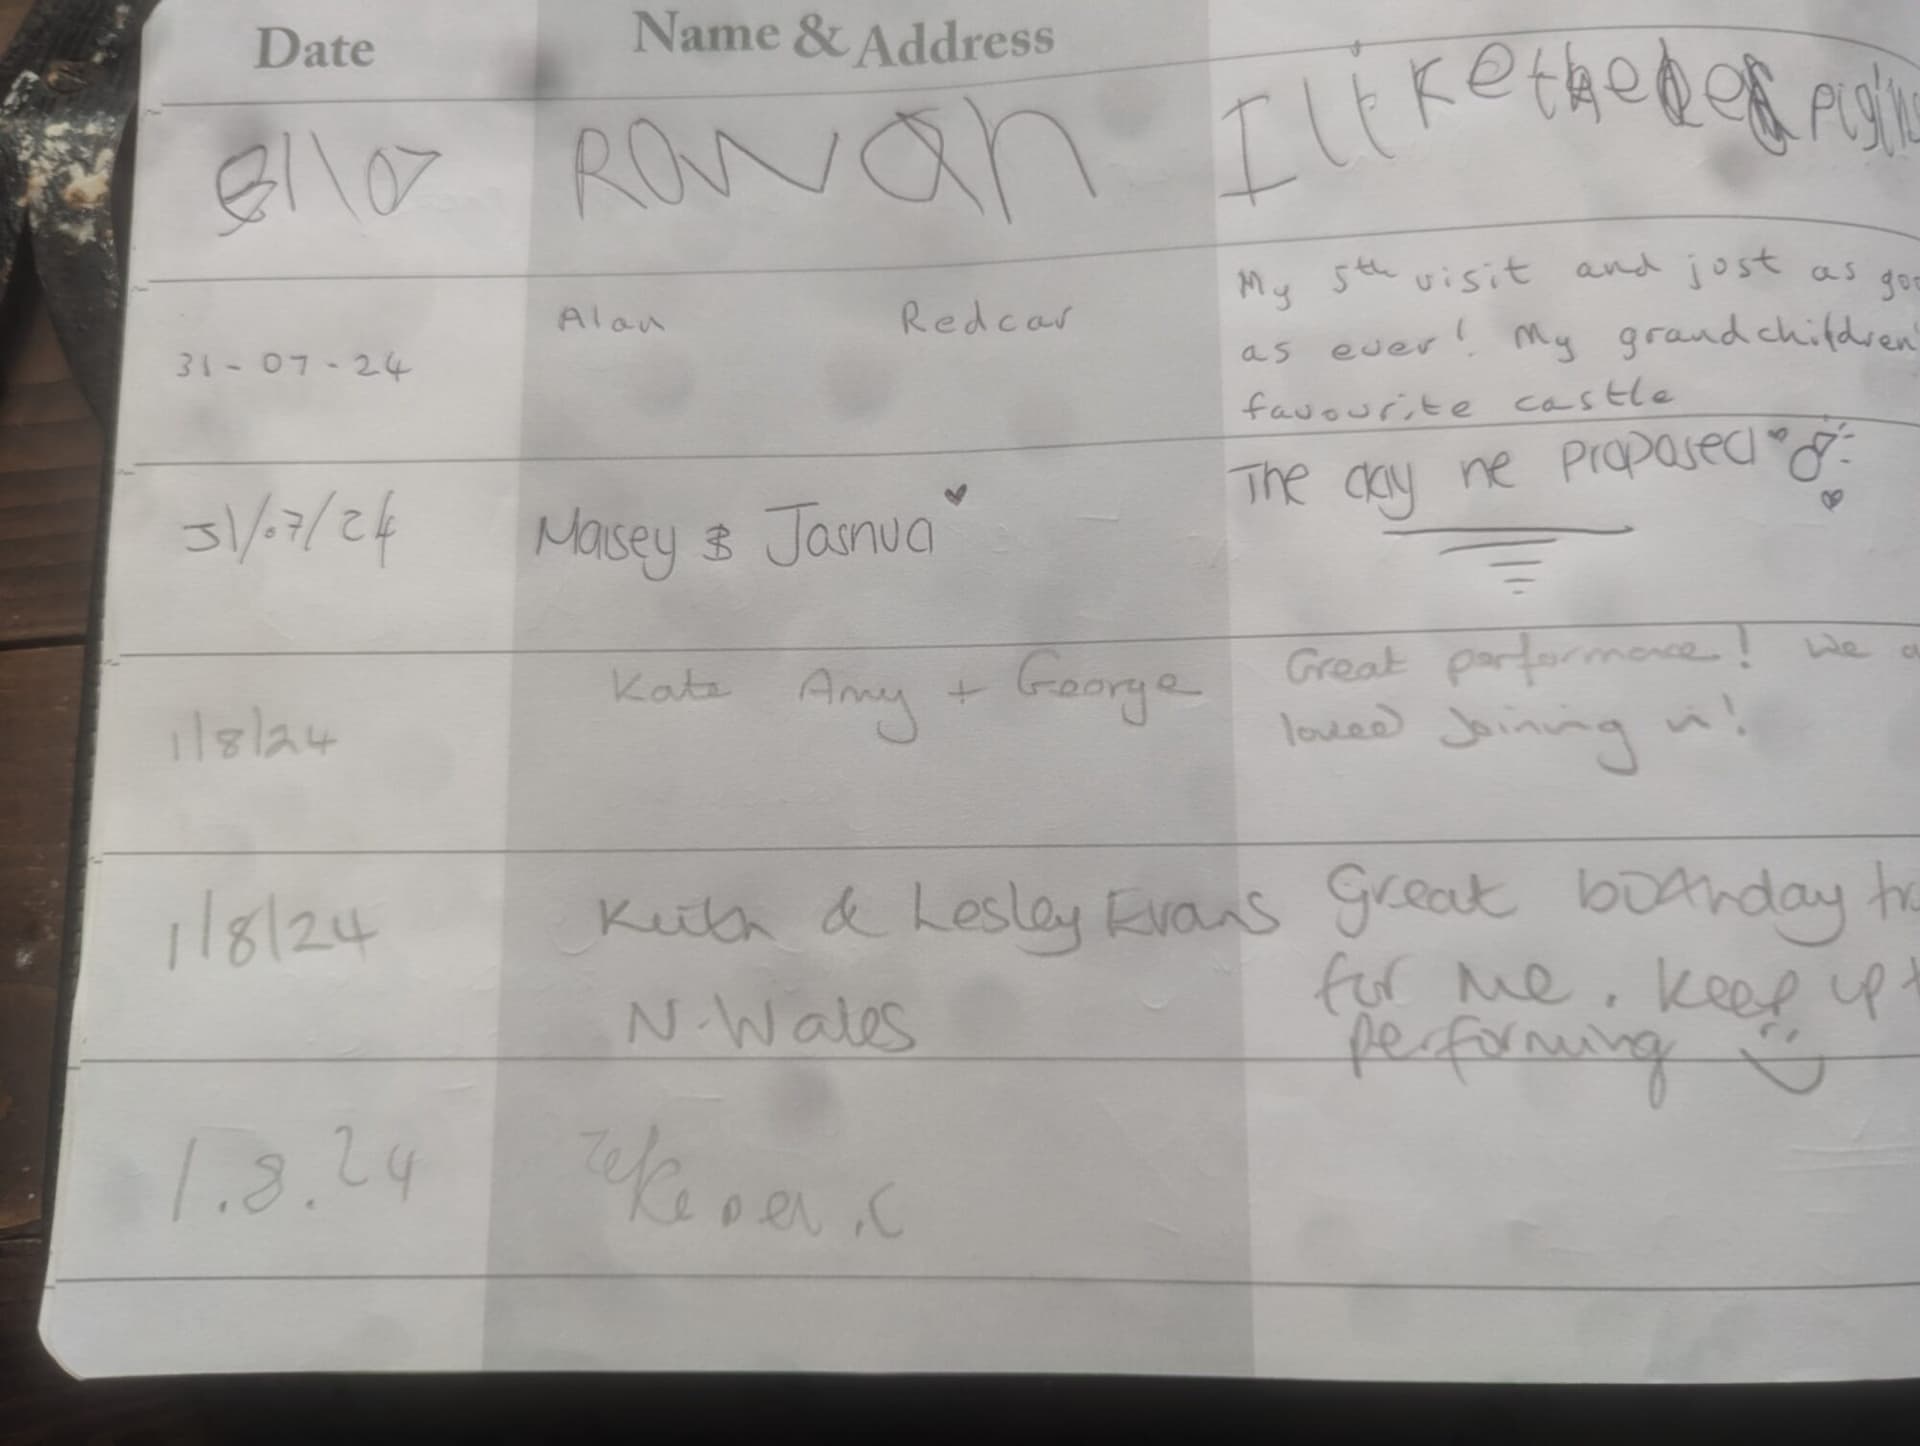 Date Name & Address
Rowan I like the
31-07-24 Alan Redcar My 5th visit and just as
as ever! My grandchildren
favourite castle
31/07/24 Maisey & Joshua The day he proposed
1/8/24 Kate Amy + George Great performance! We
loved joining in!
1/8/24 Keith & Lesley Evans Great
N. Wales for me. Keep up
performing
1.8.24